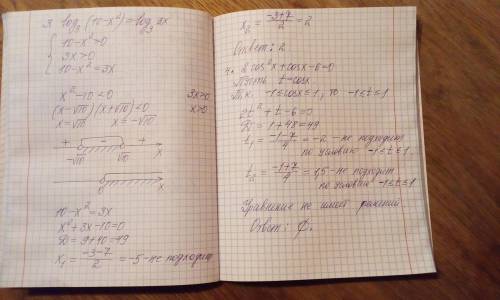 3 log₃ (10-x²) = log₃ 3x
10-x²>0
3x>0
10-x²=3x
x²-10<0 3x>0
(x-√10)(x+√10)<0 x>0
x=√10 x=-√10
+ - +
-√10 √10 x
0 x
10-x²=3x
x²+3x-10=0
D=9+40=49
x₁ = (-3-7)/2 = -5 - не подходит
x₂ = (-3+7)/2 = 2
Ответ: 2
4. 2cos²x+cosx-6=0
Пусть t=cosx
Т.к. -1≤cosx≤1, то -1≤t≤1
2t²+t-6=0
D=1+48=49
t₁ = (-1-7)/4 = -2 - не подходит
по условию -1≤t≤1.
t₂ = (-1+7)/4 = 1,5 - не подходит
по условию -1≤t≤1
Уравнение не имеет решений
Ответ: ∅.